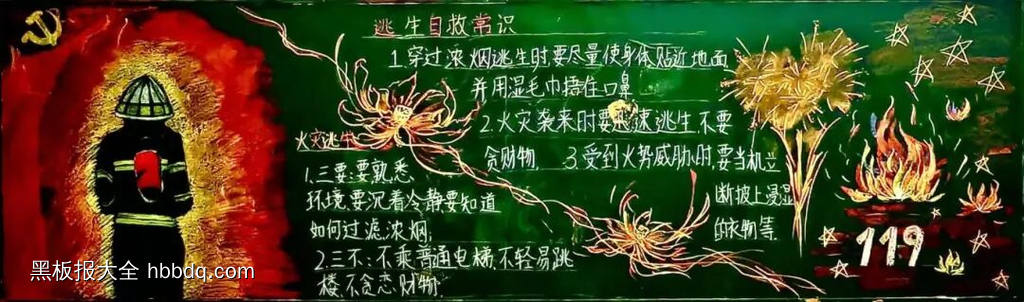 逃生自救常识
1.穿过浓烟逃生时要尽量使身体贴近地面
并用湿毛巾捂住口鼻
2.火灾袭来时要迅速逃生,不要
贪财物. 3.受到火势威胁时,要当机立
断披上浸湿
的衣物等.
火灾逃生
1.三要:要熟悉
环境要沉着冷静要知道
如何过滤浓烟.
2.三不:不乘普通电梯.不轻易跳
楼.不贪恋财物.
119
黑板报大全 hbbdq.com